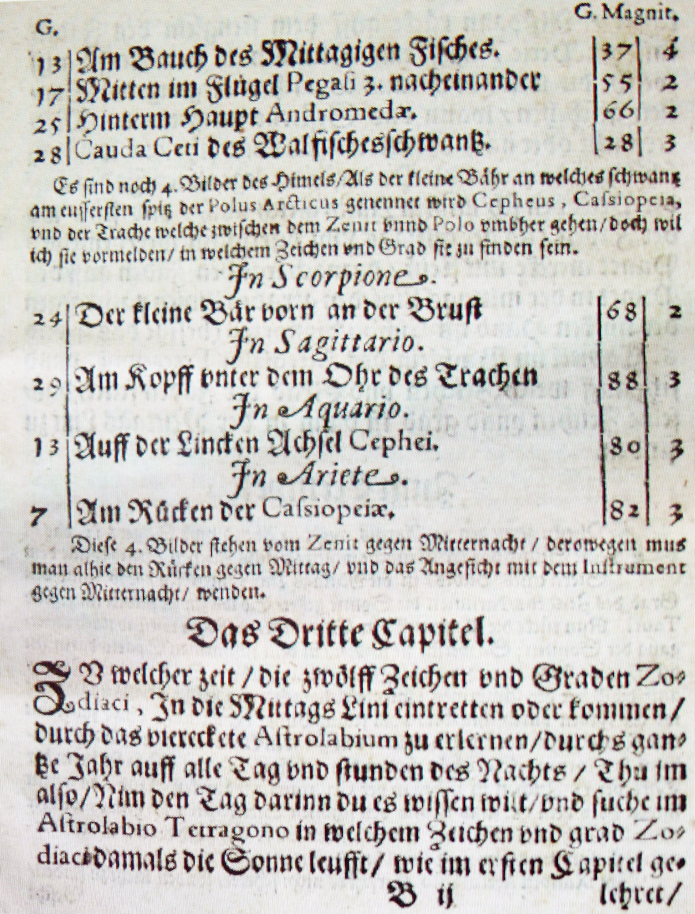 G. G. Magnit.
13 Am Bauch des Mittagigen Fisches. 37 4
17 Mitten im Flügel Pegasi 3. nacheinander 55 2
25 Hinterm Haupt Andromedæ. 66 2
28 Cauda Ceti des Walfischesschwantz. 28 3
Es sind noch 4. Bilder des Himels/Als der kleine Bähr an welches schwantz
am eussersten spitz der Polus Arcticus genennet wird Cepheus, Cassiopeia,
vnd der Trache welche zwischen dem Zenit vnnd Polo vmbher gehen/doch wil
ich sie vormelden/in welchem Zeichen vnd Grad sie zu finden sein.
In Scorpione.
24 Der kleine Bär vorn an der Brust 68 2
In Sagittario.
29 Am Kopff vnter dem Ohr des Trachen 88 3
In Aquario.
13 Auff der Lincken Achsel Cephei. 80 3
In Ariete.
7 Am Rücken der Cassiopeiæ. 82 3
Diese 4. Bilder stehen vom Zenit gegen Mitternacht/ derowegen mus
man alhie den Rücken gegen Mittag/ vnd das Angesicht mit dem Instrument
gegen Mitternacht/ wenden.
Das Dritte Capitel.
ZV welcher zeit/die zwölff Zeichen vnd Graden Zo⸗
diaci, In die Mittags Lini eintretten oder kommen/
durch das viereckete Astrolabium zu erlernen/durchs gan⸗
tze Jahr auff alle Tag vnd stunden des Nachts/ Thu im
also/Nim den Tag darinn du es wissen wilt/vnd suche im
Astrolabio Tetragono in welchem Zeichen vnd grad Zo⸗
diaci damals die Sonne leufft/ wie im ersten Capitel ge⸗
B ij lehret/